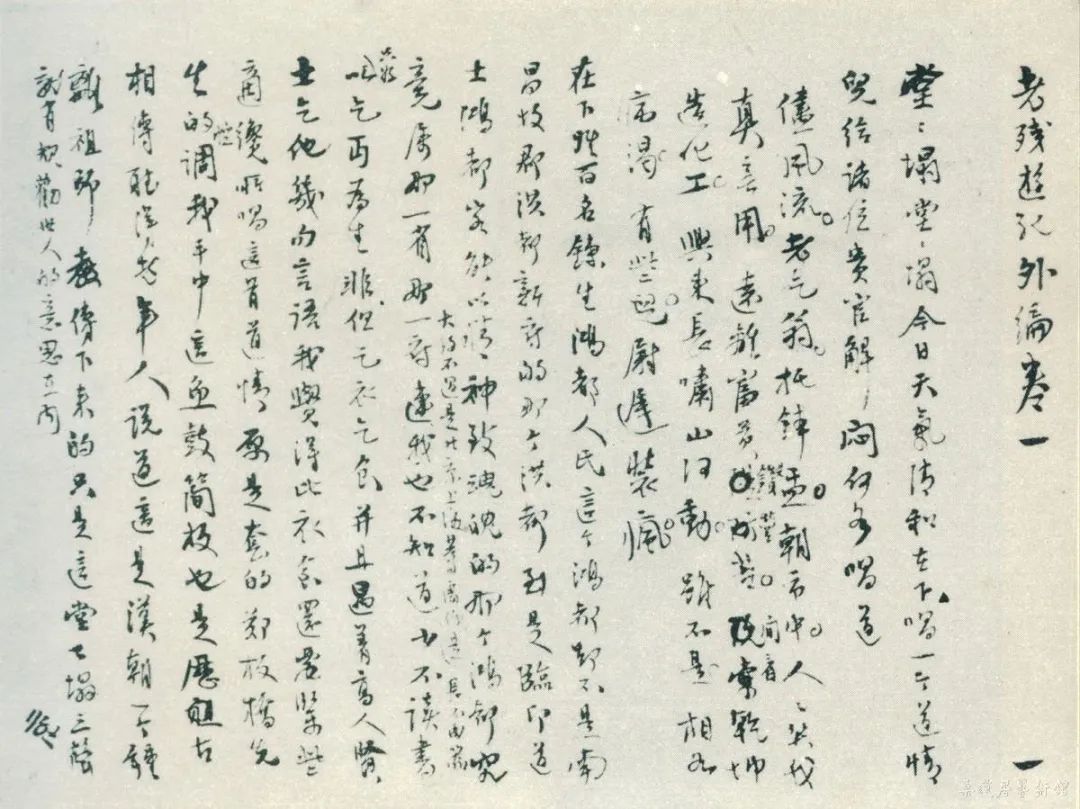 老残遊记外编卷一
堂〻塌堂〻塌今日天氣清和在下唱一个道情
兒给诸位贵官解〻闷何如唱道
儘風流老乞翁托鉢盂朝市中人〻笑我
真無用遠離富貴鑽營苦閒看乾坤
造化工興来長嘯山河動雖不是相如
病渴有些兒尉遲裝瘋
在下姓百名鍊生鴻都人氏這个鴻都却不是南
昌故郡洪都新府的那个洪都到是臨邛道
士鴻都客能以精神致魂魄的那个鴻都究
竟屬那一省那一府連我也不知道
大約不過是北京上海等處
少不讀書
吃乞丐為生非但乞衣乞食并且遇着高人賢
士乞他幾句言語我覺得比衣食還要緊些
適纔所唱這首道情原是套的郑板橋先
生的調我手中這魚鼓简板也是歷祖古
相傳聽得老年人说道這是漢朝一个鍾
離祖師傳下来的只是這堂〻塌三聲
就有规勸世人的意思在内
一